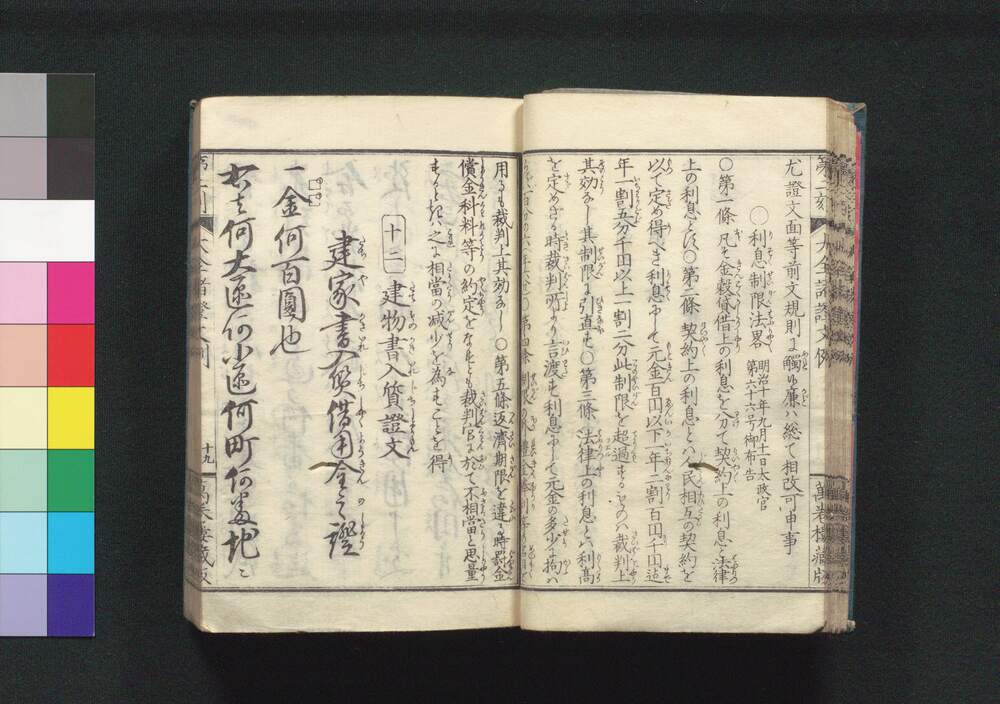 尤證文面等前文規則ニ觸ル廉ハ総て相改可申事
○利息制限法畧
明治十年九月十一日太政官
第六十六号御布告
○第一條 凡そ金穀貸借上の利息を分て契約上の利息と法律
上の利息とす○第二條 契約上の利息とハ人民相互の契約を
以て定め得べき利息にして元金百円以下一年二割百円以上千円迄
年一割五分千円以上一割二分此制限を超過するものハ裁判上
其効なし其制限に引直すも○第三條 法律上の利息とハ利高
を定めざる時裁判所より言渡す利息にして元金の多少に拘ハ
用るも裁判上其効なし○第五條 返濟期限を違る時罰金
償金科料等の約定をなすとも裁判官に於て不相當と思量
するときハ之を相當の减少を為すことを得
十二 建物書入質證文
建家書入質借用金之證
一金何百圓也
右は何大區何小區何町何番地ニ
萬巻樓藏版
十九